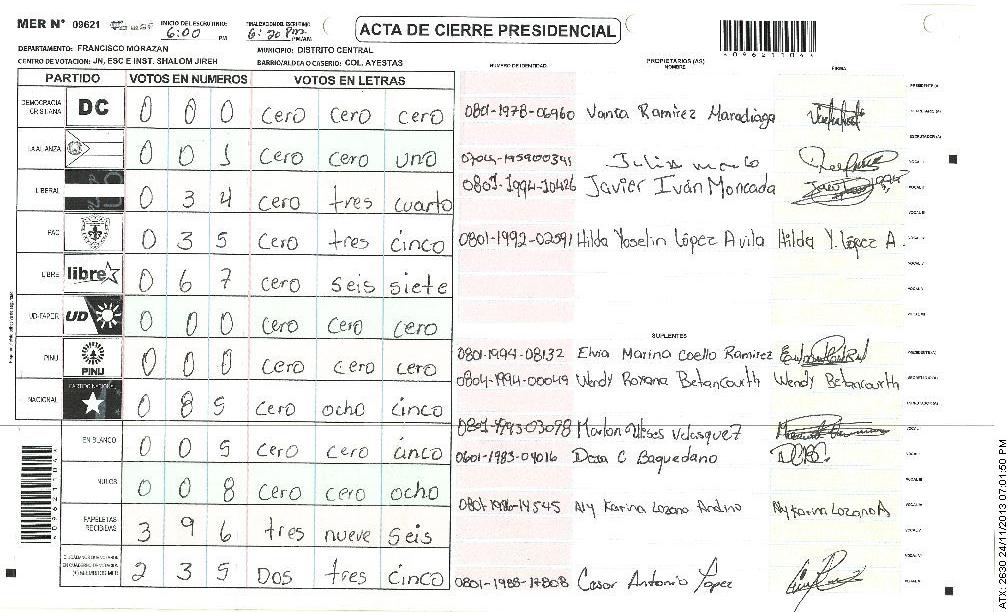 MER N° 09621 INICIO DEL ESCRUTINIO: 6:00 PM FINALIZACION DEL ESCRUTINIO: 6:20 Pm PM/AM ACTA DE CIERRE PRESIDENCIAL
DEPARTAMENTO: FRANCISCO MORAZAN MUNICIPIO: DISTRITO CENTRAL
CENTRO DE VOTACION: JN, ESC E INST. SHALOM JIREH BARRIO/ALDEA O CASERIO: COL. AYESTAS
PARTIDO VOTOS EN NUMEROS VOTOS EN LETRAS NUMERO DE IDENTIDAD PROPIETARIOS (AS) NOMBRE FIRMA
DEMOCRACIA CRISTIANA DC 0 0 0 cero cero cero 0801-1978-06960 Vanra Ramirez Maradiaga
LA ALIANZA 0 0 1 cero cero uno
LIBERAL 0 3 4 cero tres cuarto 0801-1994-10426 Javier Iván Moncada
PAC 0 3 5 cero tres cinco 0801-1992-02591 Hilda Yoselin López Avila Hilda Y. López A.
LIBRE libre 0 6 7 cero seis siete
UD-FAPER UD 0 0 0 cero cero cero
SUPLENTES
PINU PINU 0 0 0 cero cero cero 0801-1994-08132 Elvia Marina Coello Ramirez
0804-1994-00049 Wendy Roxana Betancourth Wendy Betancourth
NACIONAL PARTIDO NACIONAL 0 8 5 cero ocho cinco
EN BLANCO 0 0 5 cero cero cinco 0601-1983-04016 Dora C Baquedano
NULOS 0 0 8 cero cero ocho
PAPELETAS RECIBIDAS 3 9 6 tres nueve seis Aly Karina Lozano Andino Aly Karina Lozano A
2 3 5 Dos tres cinco 0801-1988-17808 Cesar Antonio Yopez
ATX: 2630 24/11/2013 07:01:50 PM